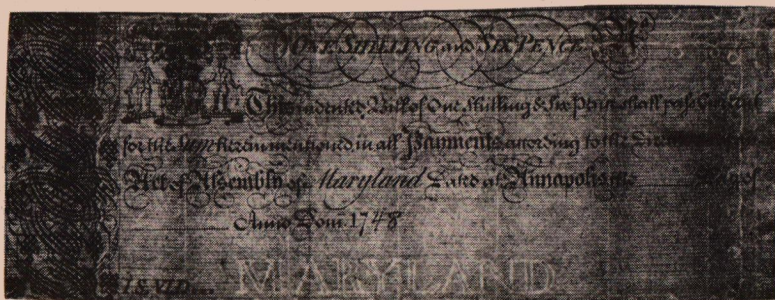 ONE SHILLING and SIX PENCE No
This indented Bill of One Shilling & Six Pence shall pass Current
for the Sum herein mentioned in all Payments according to the
Act of Assembly of Maryland Dated at Annapolis Day of
Anno Dom 1748
I S. VI D.
MARYLAND